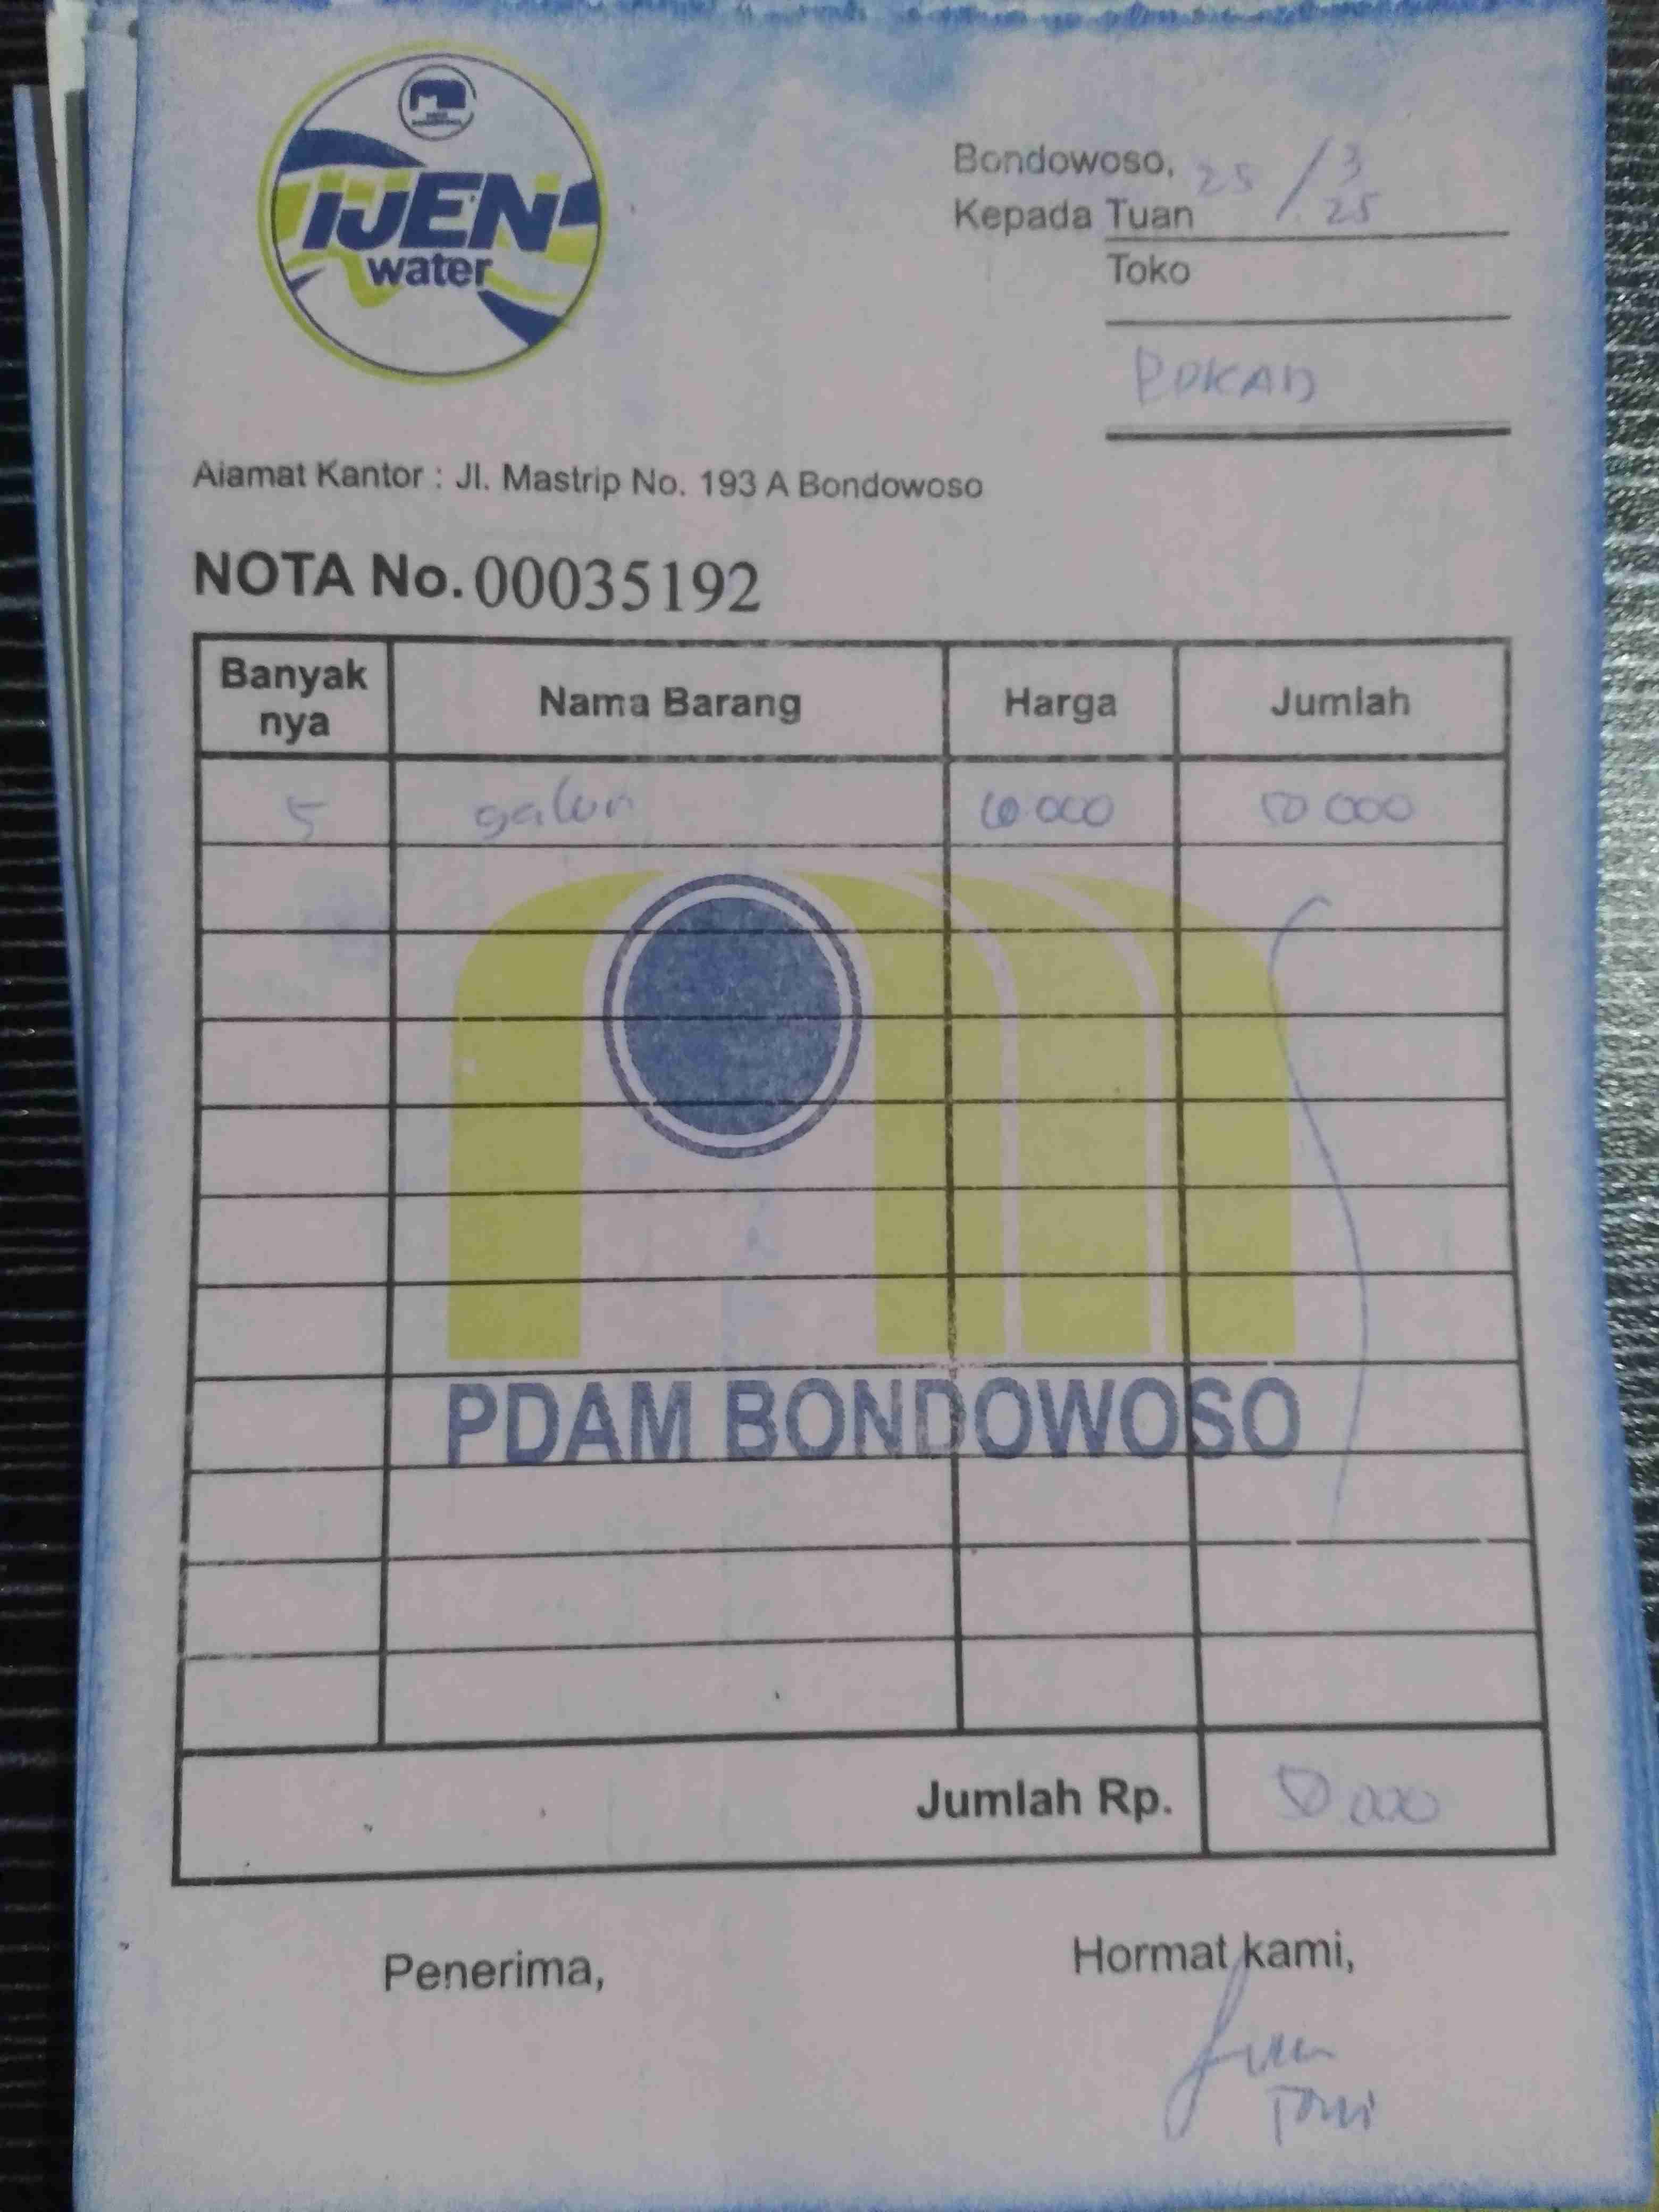 IJEN
water
Bondowoso, 25/3 25
Kepada Tuan
Toko
Alamat Kantor : Jl. Mastrip No. 193 A Bondowoso
NOTA No. 00035192
Banyak nya Nama Barang Harga Jumlah
5 galon 10.000 50 000
PDAM BONDOWOSO
Jumlah Rp. 50.000
Penerima, Hormat kami,